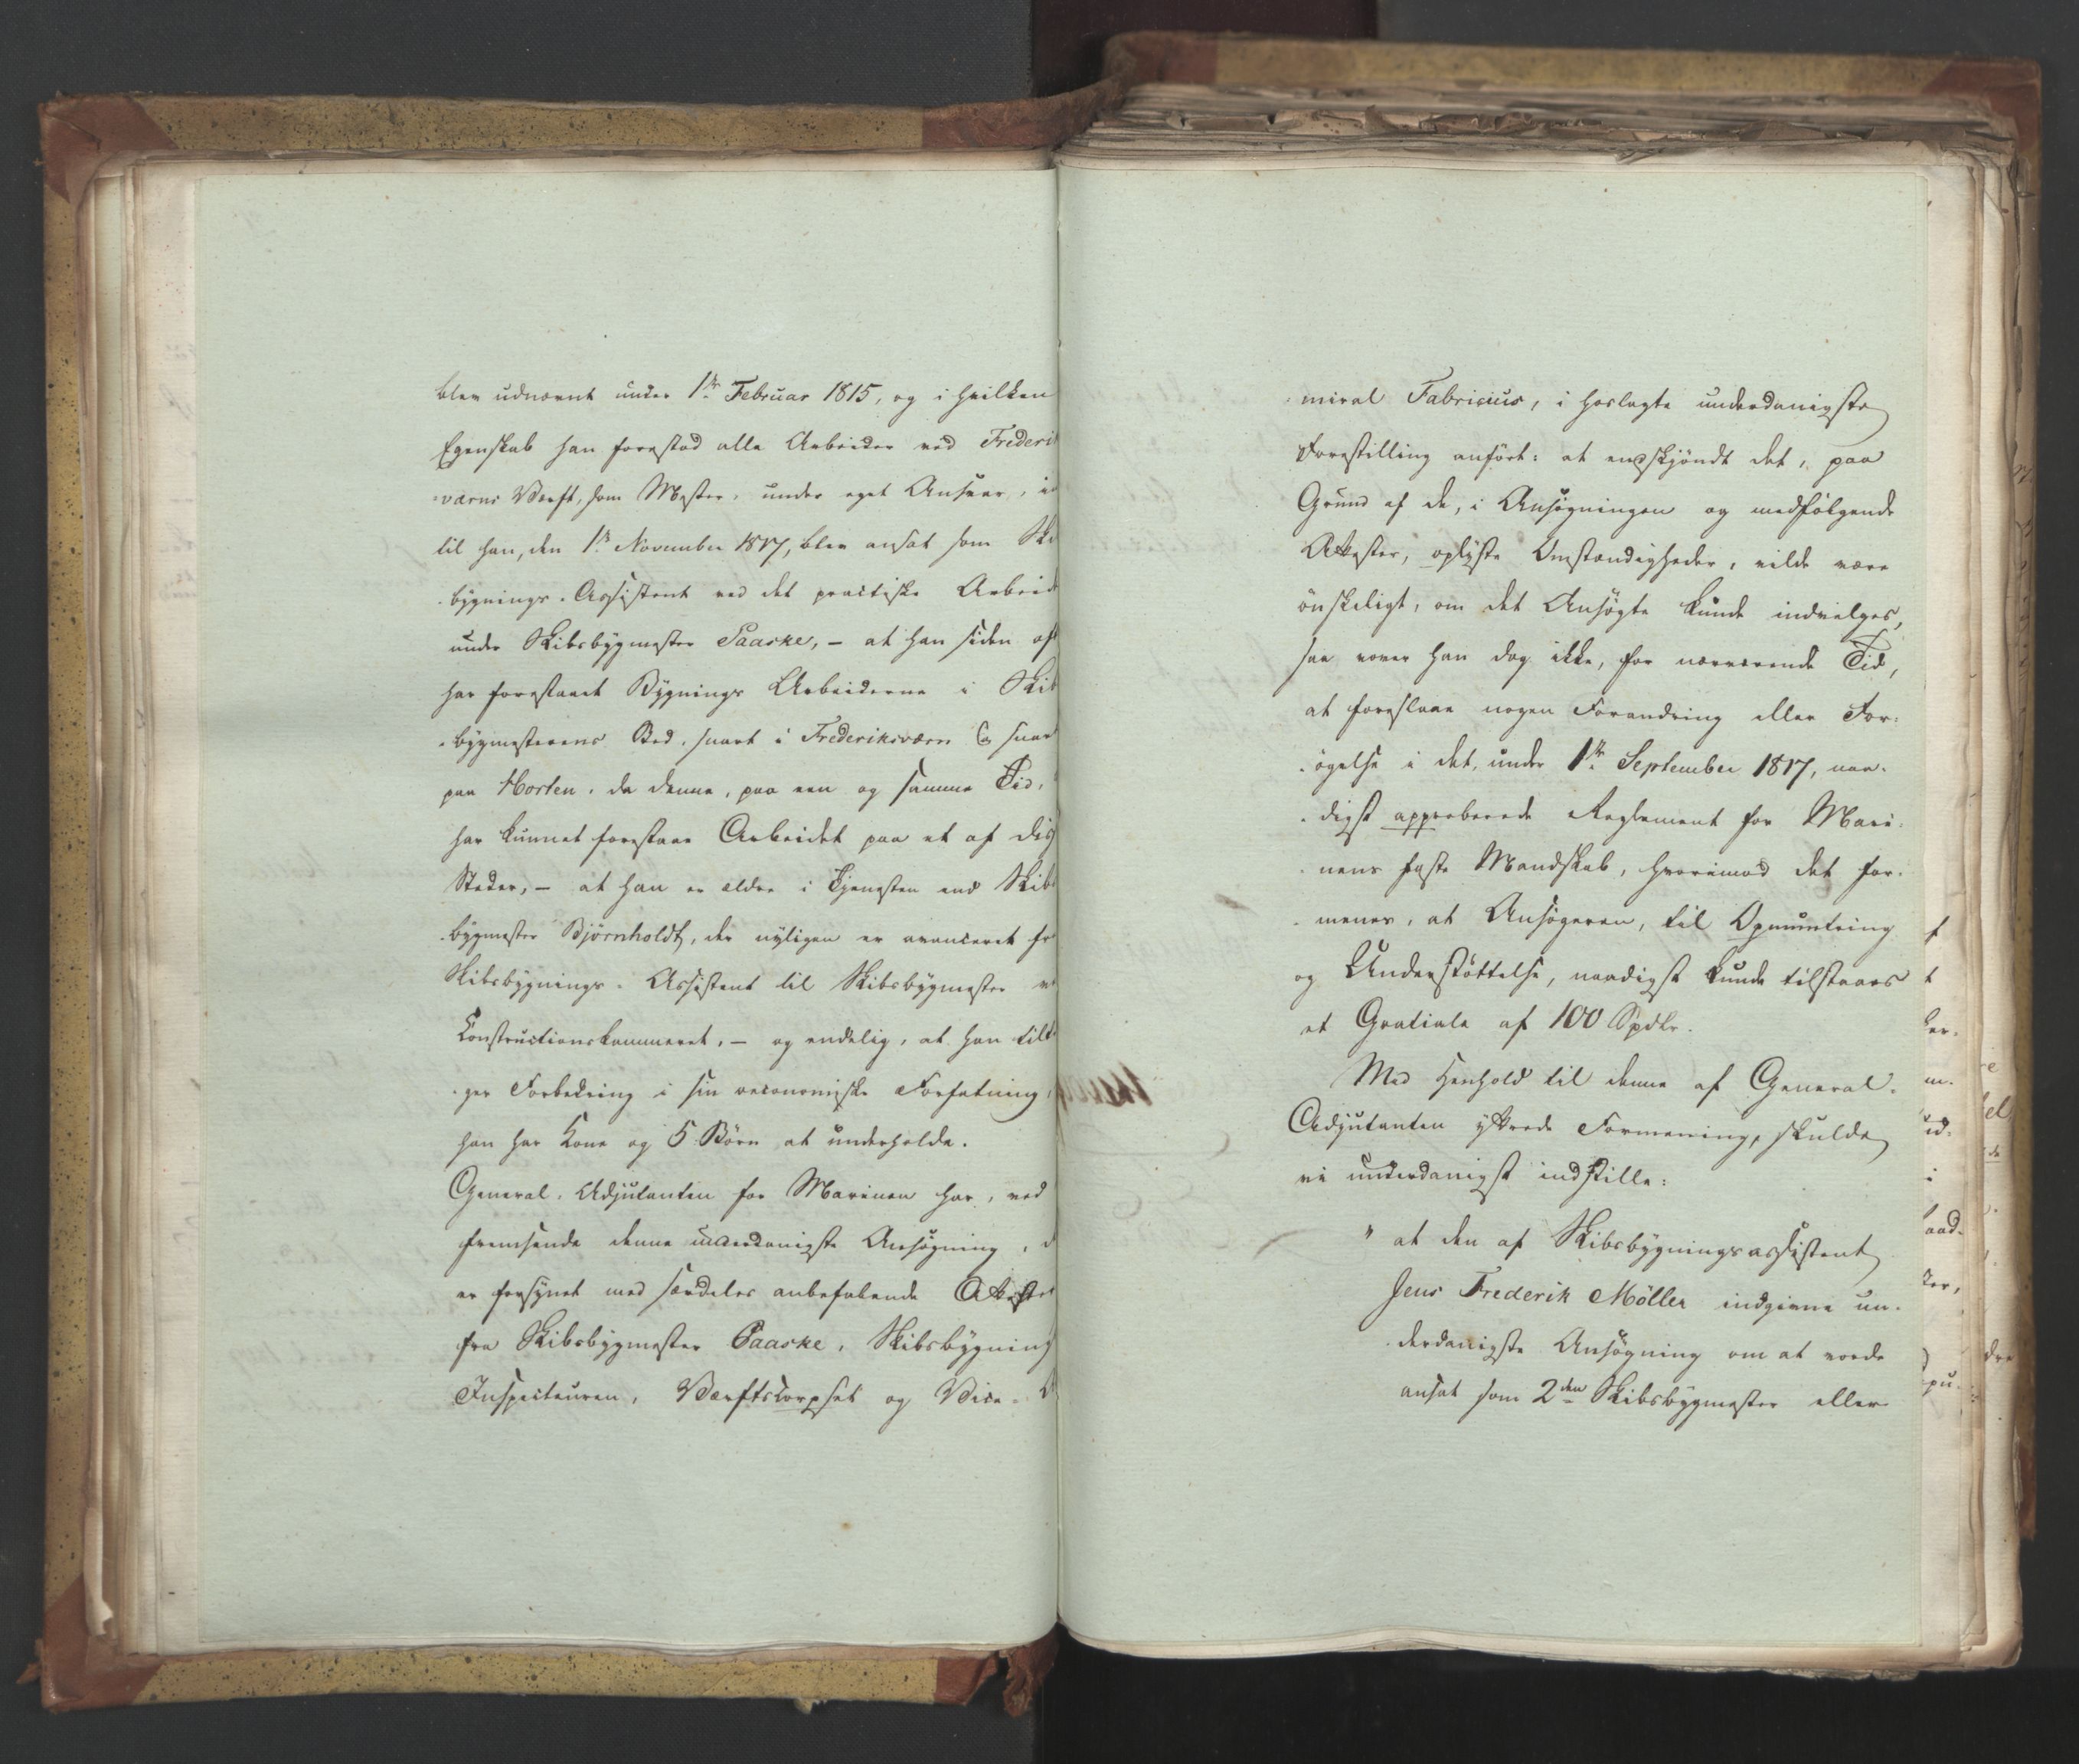 blev udnævnt under 1ste Februar 1815, og i hvilken
Egenskab han forestod alle Arbeider ved Frederi
værns Værft, som Mester, under eget Ansvar, in
til han, den 1ste November 1817, blev ansat som Ski
bygnings-Assistent ved det practiske Arbeid
under Skibsbygmester Paaske, – at han siden oft
har forestaaet Bygnings Arbeiderne i Skib
bygmesterens Sted, snart i Frederiksværn og snar
paa Horten, da denne, paa een og samme Tid,
har kunnet forestaae Arbeidet paa et af diss
Steder, – at han er ældre i Tjenesten end Skibs
bygmester Bjørnholdt, der nyligen er avanceret fra
Skibsbygnings-Assistent til Skibsbygmester ve
Constructionskammeret, – og endelig, at han til
ger Forbedring i sin oeconomiske Forfatning,
han har Kone og 5 Börn at underholde.
General-Adjutanten for Marinen har, ved
fremsende denne underdanigste Ansøgning, d
er forsynet med særdeles anbefalende Atteste
fra Skibsbygmester Paaske, Skibsbygning
Inspecteuren, Værftscorpset og Vice-
miral Fabricius, i hoslagte underdanigste
Forestilling anfört: at endskjöndt det, paa
Grund af de, i Ansögningen og medfölgende
Attester, oplyste Omstændigheder, vilde være
önskeligt, om det Ansögte kunde indvilges,
saa vover han dog ikke, for nærværende Tid,
at foreslaae nogen Forandring eller For-
ögelse i det, under 1ste September 1817, naa-
digst approberede Reglement for Mari-
nens faste Mandskab, hvorimod det for-
menes, at Ansögeren, til Opmuntring
og Understöttelse, naadigst kunde tilstaaes
et Gratiale af 100 Spdlr.
Med Henhold til denne af General-
Adjutanten yttrede Formening, skulde
vi underdanigst indstille:
" at den af Skibsbygningsassistent
Jens Frederik Möller indgivne un-
derdanigste Ansögning om at vorde
ansat som 2den Skibsbygmester eller